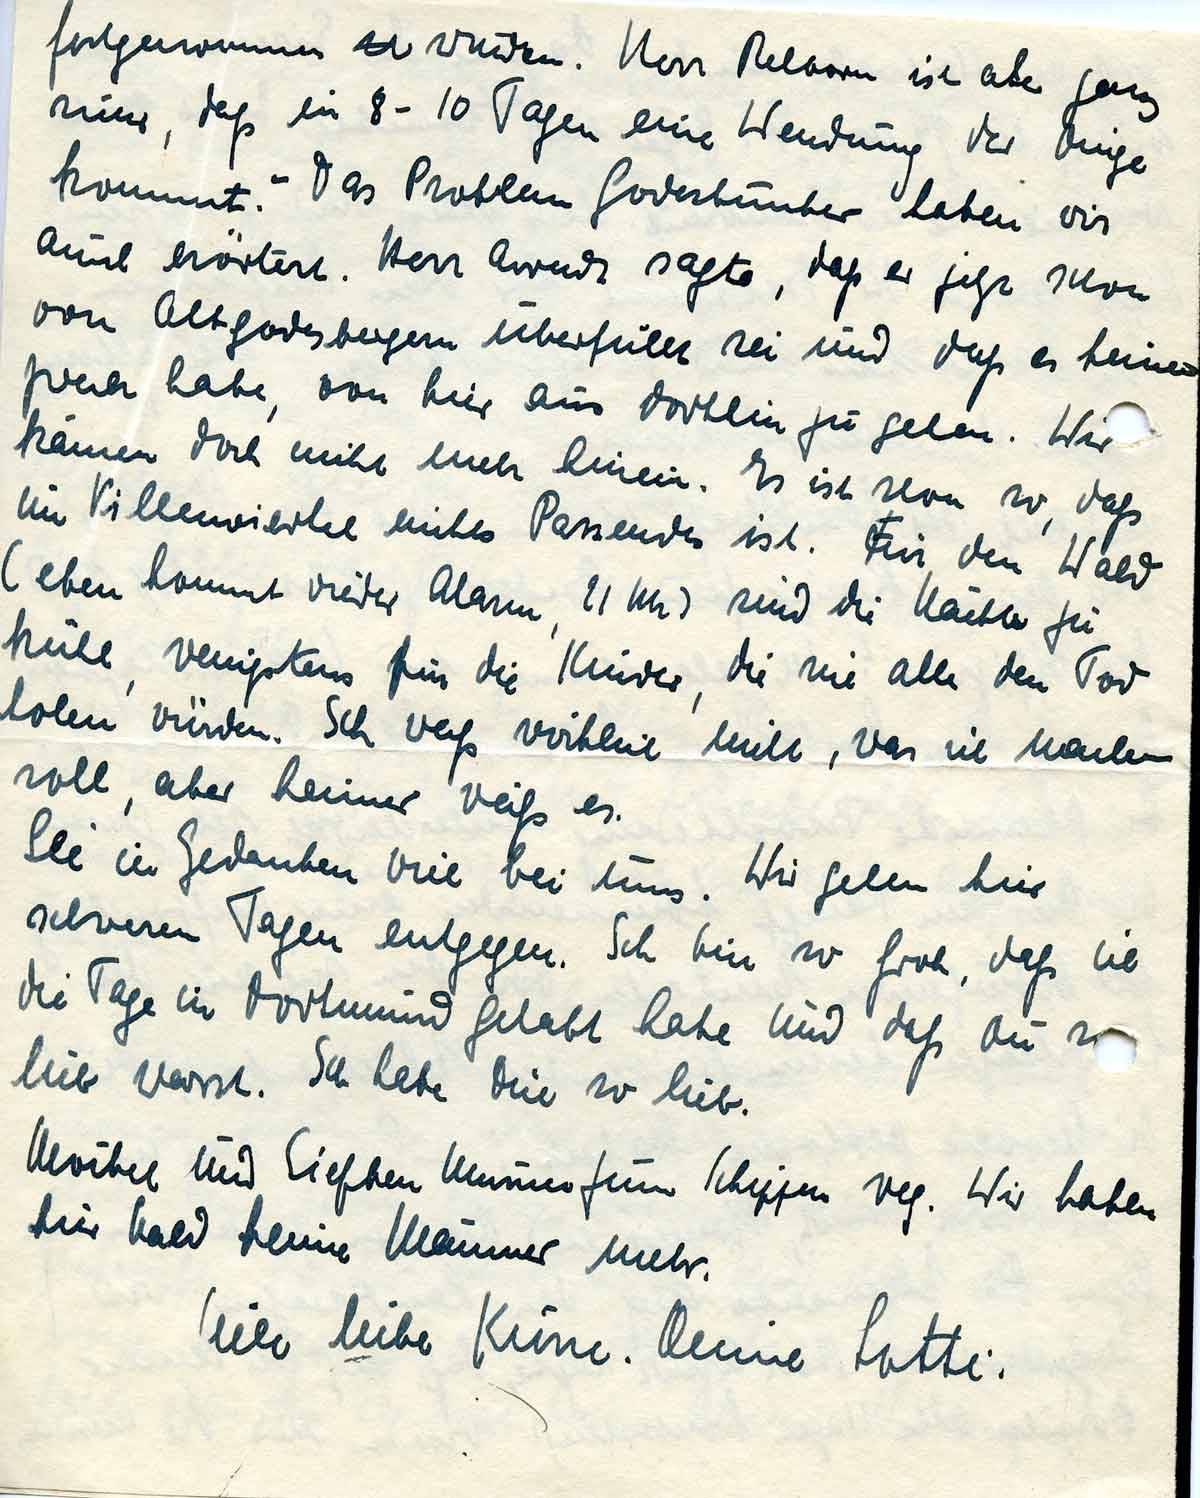 fortgenommen zu würden. Herr Rehborn ist aber ganz
sicher, daß in 8 - 10 Tagen eine Wendung der Dinge
kommt." Das Problem Godesbunker haben wir
auch erörtert. Herr Arendt sagte, daß er jetzt schon
von Altgodesbergern überfüllt sei und daß es keinen
Zweck habe, von hier aus dorthin zu gehen. Wir
kämen doch nicht mehr hinein. Es ist schon so, daß
im Villenviertel nichts Passendes ist. Für den Wald
(eben kommt wieder Alarm, 21 Uhr) sind die Nächte zu
kühl, wenigstens für die Kinder, die sich alle den Tod
holen würden. Ich weiß wirklich nicht, was ich machen
soll, aber keiner weiß es.
Sei in Gedanken viel bei uns. Wir gehen hier
schweren Tagen entgegen. Ich bin so froh, daß ich
die Tage in Dortmund gehabt habe und daß Du so
lieb warst. Ich habe Dich so lieb.
und Siefken müssen zum Schippen weg. Wir haben
hier bald keine Männer mehr.
Viele liebe Küsse. Deine Lotti.